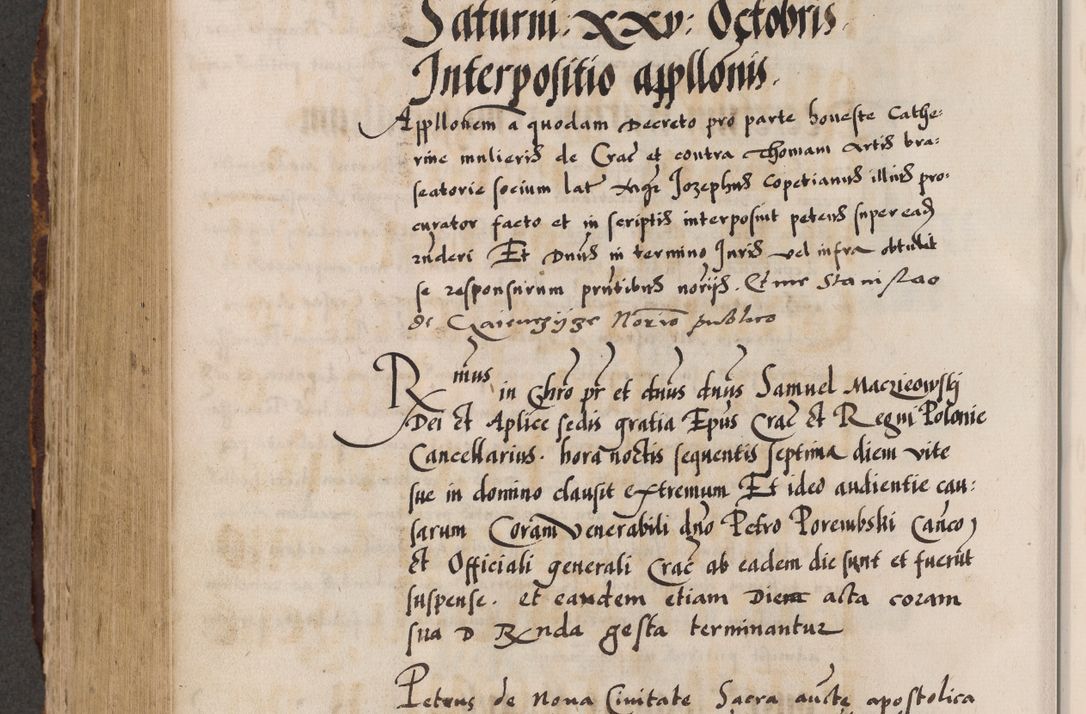 Saturni: xxv: Octobris.
Interpositio appllonis.
Appllonem a quodam decreto pro parte honeste Cathe:
rine mulieris de Crac et contra Thomam artis bra:
seatorie socium lat Mgr Jozephus Copetianus illius pro:
curator facto et in scriptis interposuit petens super eadem
rnderi Et Dnus in termino Juris vel infra obtulit
se responsurum prntibus norijs. Et me Stanislao
de Norio publico
Rmus in Chro pr et dnus dnus Samuel Maczieowskij
Dei et Aplice sedis gratia Epus Crac et Regni Polonie
Cancellarius. hora noctis sequentis septima diem vite
sue in domino clausit extremum Et ideo audientie cau:
sarum Coram Venerabili dno Petro Porembski Canco
et Officiali generali Crac ab eadem die sunt et fuerunt
suspense. et eandem etiam Diem acta coram
sua D Rnda gesta terminantur
Petrus de Noua Ciuitate Sacra aucte apostolica